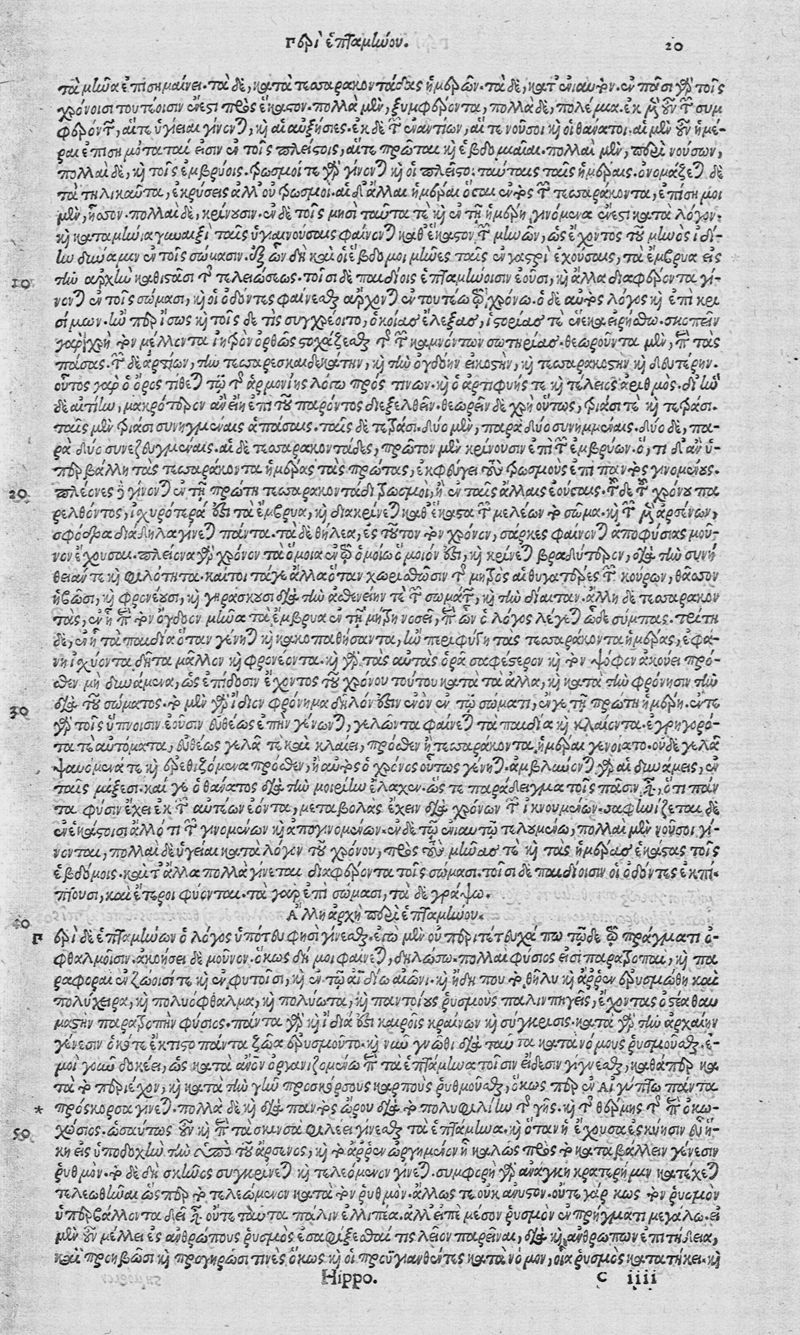 Περὶ ἑπταμήνου. 20
τὰ μηνῶα ἐπισημαίνει. τὰ δὲ, κατὰ τεσσαρακοντάδας ἡμερῶν. τὰ δὲ, κατ' ἐνιαυτόν. ἐν πᾶσι γὰρ τοῖς
χρόνοισι τουτέοισιν ἔνεστι πρὸς ἕκαστον. πολλὰ μὲν, ξυμφέροντα, πολλὰ δὲ, πολέμια. ἐκ μὲν οὖν τῶν συμ
φερόντων, αἵ τε ὑγίειαι γίνονται, καὶ αἱ αὐξήσιες. ἐκ δὲ τῶν ἐναντίων, αἵ τε νοῦσοι καὶ οἱ θάνατοι. αἱ μὲν οὖν ἡμέ-
ραι ἐπισημόταταί εἰσιν ἐν τοῖς πλείστοις, αἵ τε πρῶται καὶ ἑβδομαῖαι. πολλαὶ μὲν, περὶ νούσων,
πολλαὶ δὲ, καὶ τοῖς ἐμβρύοις. τρωσμοί τε γὰρ γίνονται καὶ οἱ πλεῖστοι ταύταις ταῖς ἡμέραις. ὀνομάζεται δὲ
τὰ τηλικαῦτα, ἐκρύσεις ἀλλ' οὐ τρωσμοί. αἱ δ' ἄλλαι ἡμέραι ὅσαι ἐντὸς τῶν τεσσαράκοντα, ἐπίσημοι
μὲν, ἧσσον. πολλαὶ δὲ, κρίνουσιν. ἐν δὲ τοῖς μησὶ ταῦτα τε καὶ ἐν τῇ ἡμέρῃ γινόμενα ἔνεστι κατὰ λόγον.
καὶ καταμήνια γυναιξὶ ταῖς ὑγιαινούσαις φαίνονται καθ' ἕκαστον τῶν μηνῶν, ὡς ἔχοντος τοῦ μηνὸς ἰδί-
ην δύναμιν ἐν τοῖς σώμασιν. ἐξ ὧν δὴ καὶ οἱ ἕβδομοι μῆνες ταῖς ἐν γαστρὶ ἐχούσαις, τὰ ἔμβρυα εἰς
10 τὴν ἀρχὴν καθιστᾶσι τῆς τελειώσεως. τοῖσι δὲ παιδίοις ἑπταμήνοισιν ἐοῦσι, καὶ ἄλλα διαφέροντα γί-
νονται ἐν τοῖς σώμασι, καὶ οἱ ὀδόντες φαίνεσθαι ἄρχονται ἐν τουτέῳ τῷ χρόνῳ. ὁ δὲ αὐτὸς λόγος καὶ ἐπὶ κρι
σίμων. ἢν περ ἴσως καὶ τοῖς δὲ τῆς συγχρέοιτο, ὁκοίας ἔλεξας, ἱστορίας τε ἕνεκα εἰρήσθω. σκοπεῖν
γὰρ χρὴ τὸν μέλλοντα ἰητρὸν ὀρθῶς στοχάζεσθαι τῆς τῶν καμνόντων σωτηρίας. θεωροῦντα μὲν, τὰς
πάσας. τῶν δὲ ἀρτίων, τὴν τεσσαρεσκαιδεκάτην, καὶ τὴν ὀγδόην εἰκοστὴν, καὶ τεσσαρακοστὴν καὶ δευτέρην.
οὗτος γὰρ ὁ ὅρος τίθεται τῷ τῆς ἁρμονίης λόγῳ πρός τινων. καὶ ὁ ἀρτιφυής τε καὶ τέλειος ἀριθμός. δι' ἣν
δὲ αἰτίην, μακρότερον ἂν εἴη ἐπὶ τοῦ παρόντος διεξελθεῖν. θεωρεῖν δὲ χρὴ οὕτως, τριάσι τε καὶ τετράσι.
ταῖς μὲν τριάσι συνημμέναις ἁπάσαις. ταῖς δὲ τετράσι. δύο μὲν, παρὰ δύο συνημμέναις. δύο δὲ, πα-
ρὰ δύο συνεζευγμέναις. αἱ δὲ τεσσαρακοντάδες, πρῶτον μὲν κρίνουσιν ἐπὶ τῶν ἐμβρύων. ὅ, τι δ' ἂν ὑ-
περβάλλῃ τὰς τεσσαράκοντα ἡμέρας τὰς πρώτας, ἐκφεύγει τοὺς τρωσμοὺς ἐπὶ παντὸς γινομένους.
20 πλέονες δὲ γίνονται ἐν τῇ πρώτῃ τεσσαρακοντάδι τρωσμοὶ, ἢ ἐν ταῖς ἄλλαις ἐούσαις. τοῦ δὲ χρόνου πα
ρελθόντος, ἰσχυρότερά ἐστι τὰ ἔμβρυα, καὶ διακρίνεται καθ' ἕκαστα τῶν μελέων τὸ σῶμα. καὶ τῶν μὲν ἀρσένων,
σφόδρα διάδηλα γίνεται πάντα. τὰ δὲ θήλεα, ἐς τοῦτον τὸν χρόνον, σάρκες φαίνονται ἀποφύσιας μοῦ-
νον ἔχουσαι. πλείονα γὰρ χρόνον τὰ ὅμοια ἐν τῷ ὁμοίῳ ὅμοιόν ἐστι, καὶ κρίνεται βραδύτερον, διὰ τὴν συνή
θειάν τε καὶ φιλότητα. καίτοι τά γε ἄλλα ὅταν χωρισθῶσιν τῆς μητρὸς αἱ θυγατέρες τῶν κούρων, θᾶσσον
ἡβῶσι, καὶ φρονέουσι, καὶ γηράσκουσι διὰ τὴν ἀσθενείην τε τῶν σωμάτων, καὶ τὴν δίαιταν. ἄλλη δὲ τεσσαρακον
τάς, ἐν ᾗ περὶ τὸν ὄγδοον μῆνα τὰ ἔμβρυα ἐν τῇ μήτρῃ νοσεῖ, περὶ ὧν ὁ λόγος λέγεται ὧδε σύμπας. τρίτη
δὲ, ἐν ᾗ τὰ παιδία ὅταν γένηται καὶ κακοπαθήσαντα, ἢν περιφύγῃ τὰς τεσσαράκοντα ἡμέρας, ἐφά-
νη ἰσχύοντα δῆτα μᾶλλον καὶ φρονέοντα. καὶ γὰρ τὰς αὐγὰς ὁρᾷ σαφέστερον καὶ τὸν ψόφον ἀκούει πρό-
σθεν μὴ δυνάμενα, ὡς ἐπίδοσιν ἔχοντος τοῦ χρόνου τούτου κατὰ τὰ ἄλλα, καὶ κατὰ τὴν φρόνησιν τὴν
30 διὰ τοῦ σώματος. τὸ μὲν γὰρ ἴδιον φρόνημα δῆλόν ἐστιν ἐνὸν ἐν τῷ σώματι, ἔν γε τῇ πρώτῃ ἡμέρῃ. ἔν τε
γὰρ τοῖς ὕπνοισιν ἐοῦσιν εὐθέως ἐπὴν γένωνται, γελῶντα φαίνεται τὰ παιδία καὶ κλαίοντα. ἐγρηγορό-
τα τε αὐτόματα, εὐθέως γελᾷ τε καὶ κλαίει, πρόσθεν ἢ τεσσαράκοντα ἡμέραι γενοίατο. οὐδὲ γελᾷ
ψαυόμενά τε καὶ ἐρεθιζόμενα πρόσθεν, ἢ αὐτὸς ὁ χρόνος οὗτος γένηται. ἀμβλύνονται γὰρ αἱ δυνάμεις, ἐν
ταῖς μύξεσι. καί γε ὁ θάνατος διὰ τὴν μοιρίην ἔλαχεν. ὥς τε παράδειγμα τοῖς πᾶσιν εἶναι, ὅτι πάν
τα φύσιν ἔχει ἐκ τῶν αὐτέων ἐόντα, μεταβολὰς ἔχειν διὰ χρόνων τῶν ἱκνουμένων. σαφηνίζεται δὲ
ἐν ἑκάστοισι ἄλλό τι τῶν γινομένων καὶ ἀπογινομένων. ἐν δὲ τῷ ἐνιαυτῷ τελουμένῳ, πολλαὶ μὲν νοῦσοι γί-
νονται, πολλαὶ δὲ ὑγίειαι κατὰ λόγον τοῦ χρόνου, πρὸς τοὺς μῆνάς τε καὶ τὰς ἡμέρας ἑκάστας τοῖς
ἑβδόμοις. καὶ τἄλλα πολλὰ γίνεται διαφέροντα τοῖς σώμασι. τοῖσι δὲ παιδίοισιν οἱ ὀδόντες ἐκπί-
πτουσι, καὶ ἕτεροι φύονται. τὰ γὰρ ἐπὶ σώμασι, τὰ δὲ γράψω.
Ἄλλη ἀρχὴ περὶ ἑπταμήνου.
40 Περὶ δὲ ἑπταμήνων ὁ λόγος ὑπότευ φησὶ γίνεσθαι. ἐγὼ μὲν οὐ περιτέτυχά πω τῷδε τῷ πράγματι ὀ-
φθαλμοῖσιν. ἀκοῇσι δὲ μοῦνον. ὅκως δή μοι φαίνεται, δηλώσω. πολλαὶ φύσιός εἰσι παρατροπαὶ, καὶ πα
ραφοραὶ ἐν ζώοισί τε καὶ ἐν φυτοῖσι, καὶ ἐν τῷ ἀϊδίῳ αἰῶνι. καὶ ἤδη που τὸ θῆλυ καὶ ἄρρεν ἐρυσμώθη καὶ
πολύχειρα, καὶ πολυόφθαλμα, καὶ πολύωτα, καὶ παντοίους ῥυσμοὺς παλιμπηγεῖς, ἔχοντας ὀξέα θαυ
μαστὴν παρατροπὴν φύσιος. πάντα γὰρ καὶ ἰδίᾳ ἐστὶ καιροῖς κραίνων καὶ σύγκρισις. κατὰ γὰρ τὴν ἀρχαίην
γένεσιν ὁκότε ἐκτίσθη πάντα ζῶα ἐρυσμοῦτο. καὶ νῦν γνῶθι διὰ ταῦτα κατὰ νόμους ῥυσμοῦσθαι. ἐ-
μοὶ γοῦν δοκέει, ὡς κατὰ νόον ὀργανιζομένη περὶ τὰ ἑπτάμηνα τοῖσιν εἴδεσιν γίγνεσθαι, καθάπερ κα
τὰ τὸ περιέχον, καὶ κατὰ τὴν γῆν προσκόρσους καρποὺς ῥυθμοῦσθαι, ὅκως περ ἐν Αἰγύπτῳ πάντα
* πρόσκορσα γίνεται. πολλὰ δὲ καὶ διὰ παντὸς ὥρου διὰ τὸ πολυφιλίην τῆς γῆς. καὶ τῆς θέρμης τῆς περὶ ὀκω
50 χώσιος. ὡσαύτως οὖν καὶ περὶ τὰ σκίνσα φιλέει γίνεσθαι τὰ ἑπτάμηνα. καὶ ὅταν ἡ ἔχουσα ἐς κύησιν εὖ ἥ-
κῃ εἰς ὑποδοχὴν τὴν ἀπὸ τοῦ ἄρσενος, καὶ τὸ ἄρρεν ὠργημένον ᾖ καλῶς πρὸς τὸ καταβάλλειν γένεσιν
ῥυθμόν. τὸ δὲ δὴ σκῆνος συγκρίνεται καὶ τελεόμενον γίνεται. συμφορὴ γὰρ ἀνάγκη κρατερῆμιν κατέχεται
τελεωθῆναι ὥσπερ τὸ τελεώμενον κατὰ τὸν ῥυθμόν. ἄλλως τε οὐκ ἀνυστόν. οὔτε γάρ κως τὸν ῥυσμὸν
ὑπερβάλλοντα δεῖ εἶναι. οὔτε ταῦτα πάλιν ἐλλιπέα. ἀλλ' ἐπὶ μέσον ῥυσμὸν ἐν πρήγματι μεγάλῳ. εἰ
μὲν οὖν μέλλει ἐς ἀνθρώπους ῥυσμὸς ἐσαφίξεσθαί τις λεῖον παρεῖναι, διὰ καὶ ἀνθρώπων ἐπιτήδεια,
καὶ προηβῶσι καὶ προγηρῶσι τινὲς ὅκως καὶ οἱ προϋγιανθέντες κατὰ νόμον, οἷα ῥυσμὸς κατατήκει. καὶ
Hippo. C iiii